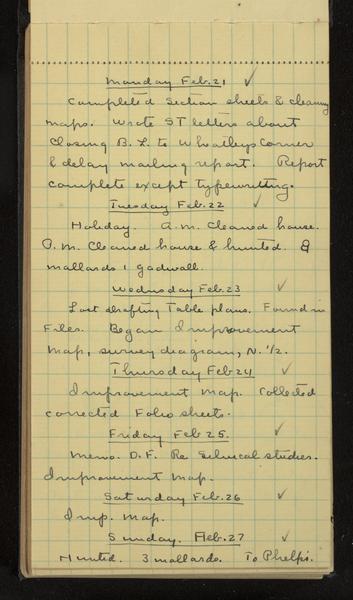 Monday Feb. 21 ✓
Completed section sheets & cleaning
maps. Wrote ST letters about
closing B. L. to Wheatleys Corner
& delay mailing report. Report
complete except typewriting.
Tuesday Feb. 22 ✓
Holiday. A.M. Cleaned house.
P.M. Cleaned house & hunted. 8
mallards 1 gadwall.
Wednesday Feb. 23 ✓
Lost drafting Table plans. Found in
Files. Began Improvement
Map, survey diagram, N. 1/2.
Thursday Feb 24 ✓
Improvement Map. Collected
corrected Folio sheets.
Friday Feb 25. ✓
Memo. D.F. Re studies.
Improvement Map.
Saturday Feb. 26 ✓
Imp. Map.
Sunday. Feb. 27 ✓
Hunted. 3 mallards. To Phelps.